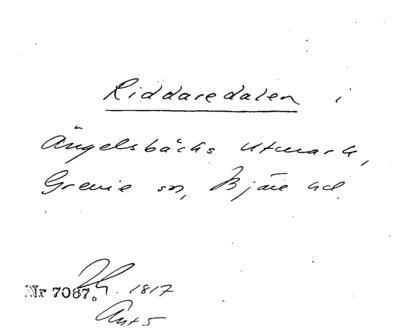 Riddaredalen i
Ängelsbäcks utmark,
Grevie sn, Bjäre hd.
Nr 7087. 1817